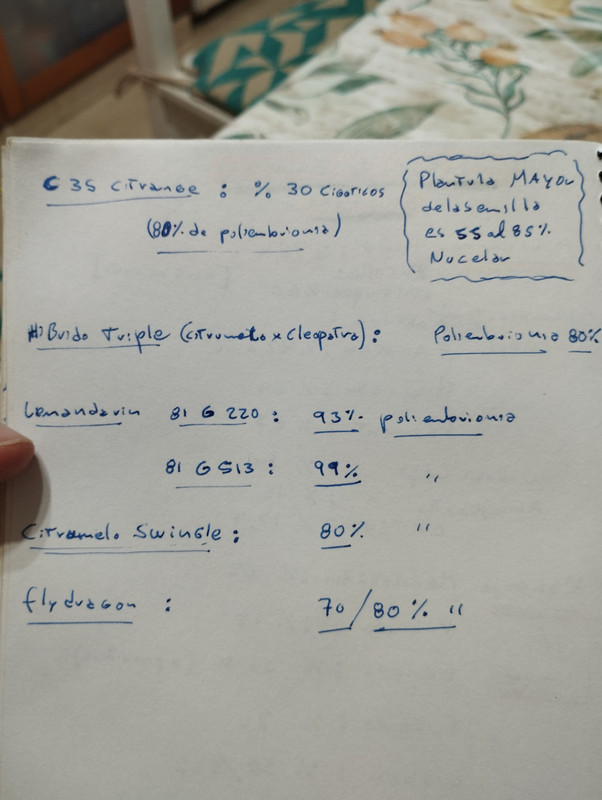 C 35 Citrange : % 30 Cigoticos
(80% de polienbrionia)
Plantula MAYOR
dela semilla
es 55 al 85%
Nucelar
Hibrido Triple (citrumelo x Cleopatra) : Polienbrionia 80%
Lemandarin 81 G 220 : 93% polienbrionia
81 G 513 : 99% "
Citramelo Swingle : 80% "
flydragon : 70/80% "